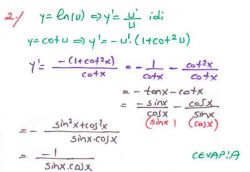 2.) y = ln(u) ⇒ y' = u'/u idi
y = cotu ⇒ y' = -u'.(1+cot²u)
y' = -(1+cot²x)/cotx = -1/cotx - cot²x/cotx
= -tanx - cotx
= -sinx/cosx - cosx/sinx
(sinx) (cosx)
= - sin²x+cos²x/sinx.cosx
= -1/sinx.cosx
CEVAP: A